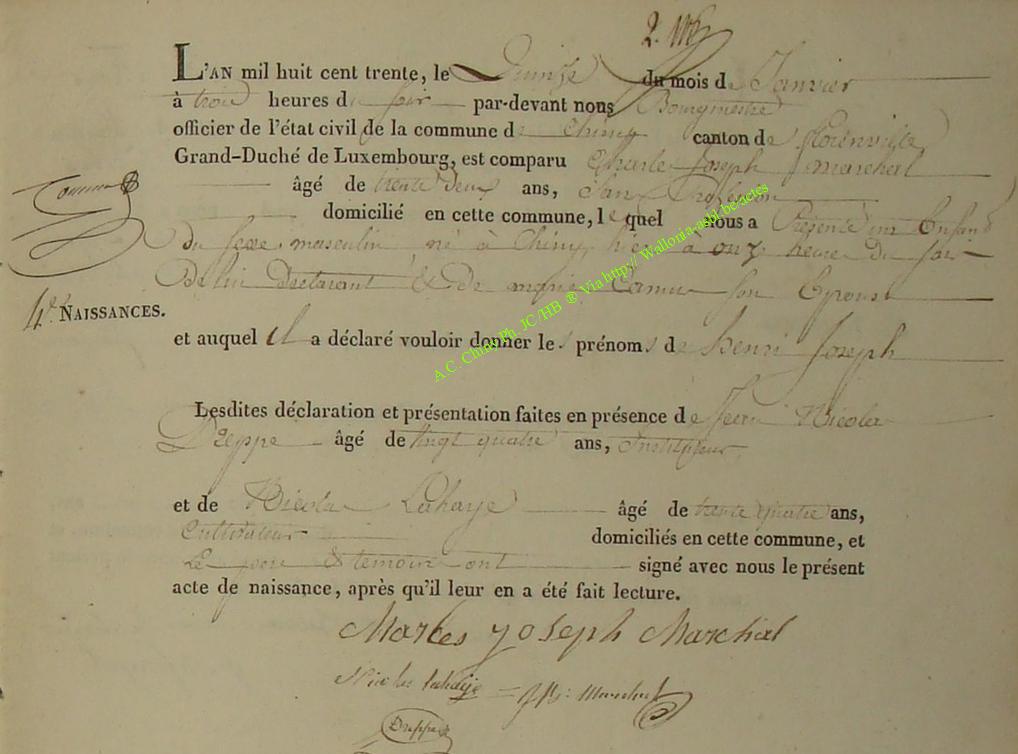 L'AN mil huit cent trente, le Quinze du mois de Janvier
à trois heures du soir par-devant nous Bourgmestre
officier de l'état civil de la commune de Chiny canton de florenville
Grand-Duché de Luxembourg, est comparu Charle Joseph marchal
âgé de trente deux ans, San Profession
domicilié en cette commune, le quel nous a Présenté un Enfant
du sexe masculin né à Chiny, hier à onz heure du soir
De lui declarant & de marie Camu son Epouse
4e. NAISSANCES.
et auquel il a déclaré vouloir donner les prénoms de henri Joseph
Lesdites déclaration et présentation faites en présence de Jean Nicolas
Dreppe âgé de vingt quatre ans, Instituteur
et de Nicolas Lahaye âgé de trente quatre ans,
Cultivateur domiciliés en cette commune, et
Le pere & temoins ont signé avec nous le présent
acte de naissance, après qu'il leur en a été fait lecture.
Joseph Marchal
Nicolas Lahaye
Dreppe
A.C. Chiny Ph. JC/HB ® Via http:// Wallonia-asbl.be-actes